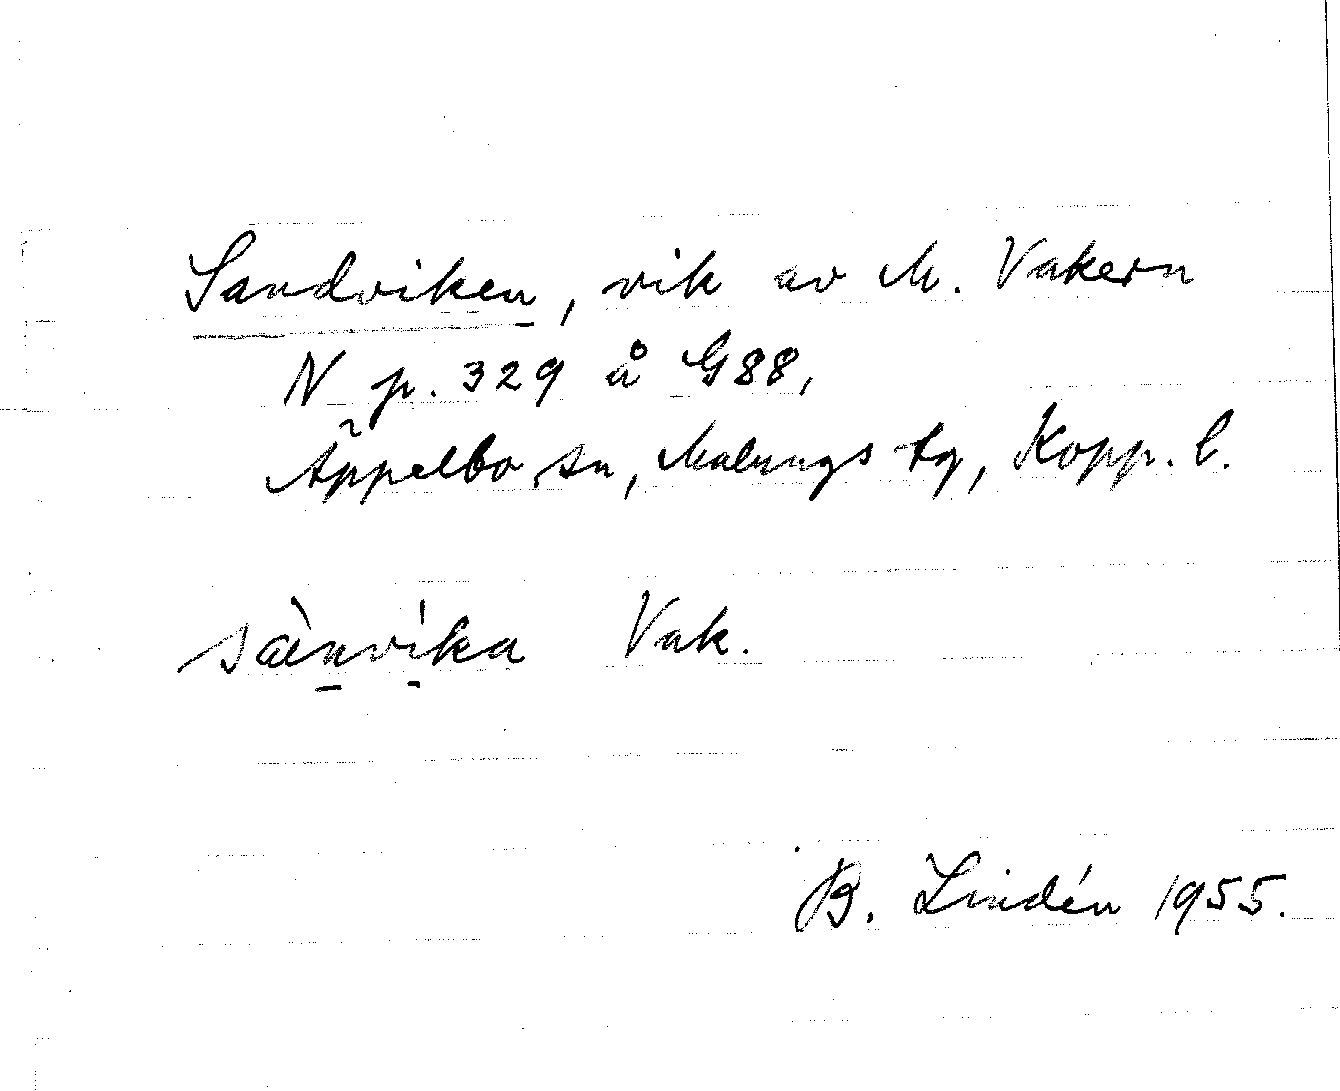 Sandviken, vik av M. Vakern
N p. 329 å G88,
Äppelbo sn, Malungs tg, Kopp. l.
sànvíka Vak.
B. Lindén 1955.